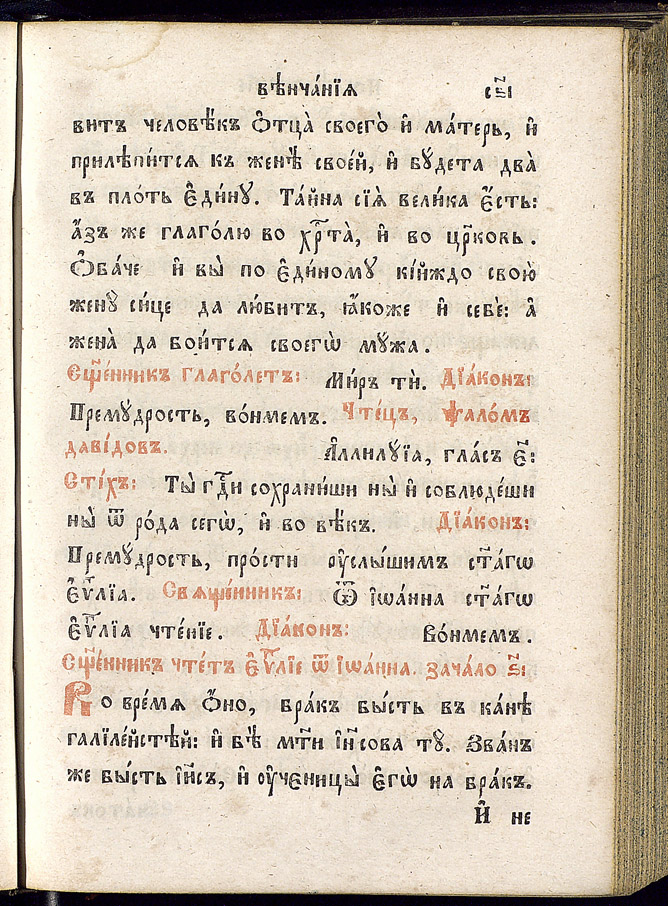 вѣнча́нїѧ
витъ человѣ́къ ѻ҆тца̀ своего̀ и҆ ма́терь, и҆
прилѣпи́тсѧ къ женѣ̀ свое́й, и҆ бꙋ́дета два̀
въ пло́ть є҆ди́нꙋ. Та́йна сїѧ̀ вели́ка є҆́сть:
а҆́зъ же глаго́лю во хрⷭ҇та̀, и҆ во цр҃ковь.
Ѻ҆ба́че и҆ вы̀ по є҆ди́номꙋ кі́йждо свою̀
женꙋ̀ си́це да лю́битъ, ꙗ҆́коже и҆ себѐ: а҆
жена̀ да бои́тсѧ своегѡ̀ мꙋ́жа.
Сщ҃е́нникъ глаго́летъ: Ми́ръ тѝ. Дїа́конъ:
Премꙋ́дрость, во́нмемъ. Чте́цъ, ѱало́мъ
дави́довъ. А҆ллилꙋ́їа, гла́съ є҃:
Сті́хъ: Ты̀ гдⷭ҇и сохрани́ши ны̀ и҆ соблюде́ши
ны̀ ѿ ро́да сегѡ̀, и҆ во вѣ́къ. Дїа́конъ:
Премꙋ́дрость, про́сти ᲂу҆слы́шимъ ст҃а́гѡ
є҆ѵⷢ҇лїа. Свѧще́нникъ: Ѿ і҆ѡа́нна ст҃а́гѡ
є҆ѵⷢ҇лїа чте́нїе. Дїа́конъ: Во́нмемъ.
Сщ҃е́нникъ чте́тъ є҆ѵⷢ҇лїе ѿ і҆ѡа́нна. зача́ло
Во вре́мѧ ѻ҆́но, бра́къ бы́сть въ ка́нѣ
галїле́йстѣй: и҆ бѣ̀ мт҃и і҆и҃сова тꙋ̀. Зва́нъ
же бы́сть і҆и҃съ, и҆ ᲂу҆ченицы̀ є҆гѡ̀ на бра́къ.
И҆ не